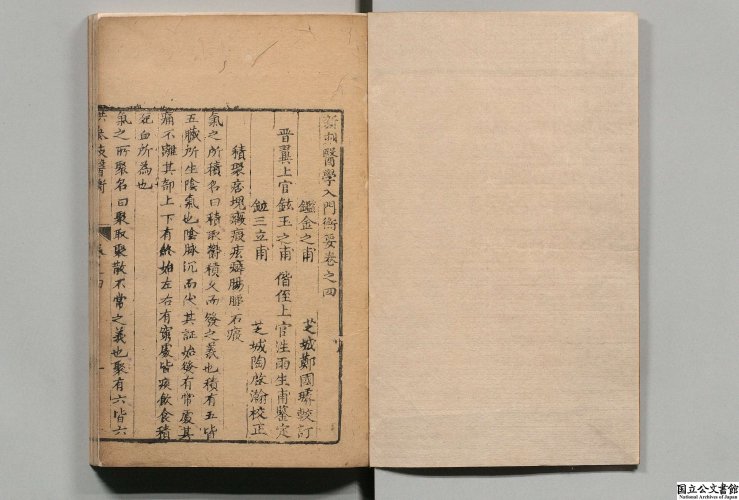 新刻醫學入門衡要卷之四
鑑金之甫 芝城鄭國 較訂
晋翼上官 鉉玉之甫 偕侄上官 雨生甫鑒定
三立甫 芝城陶啟瀚校正
積聚痞塊癥瘕痃癖腸 石瘕
氣之所積名曰積取鬱積久而發之義也積有五皆
五臟所生陰氣也陰脉沉而伏其証始發有常處其
痛不離其部上下有終始左右有窮處皆痰飲食積
死血所為也
氣之所聚名曰聚取聚散不常之義也聚有六皆六
卷之四
国立公文書館
National Archives of Japan